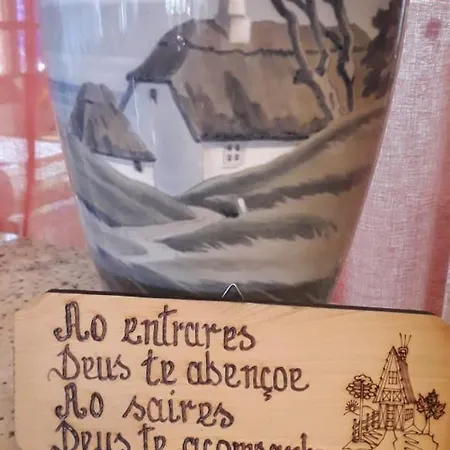 Ao entrares
Deus te abençoe
Ao saires
Deus te